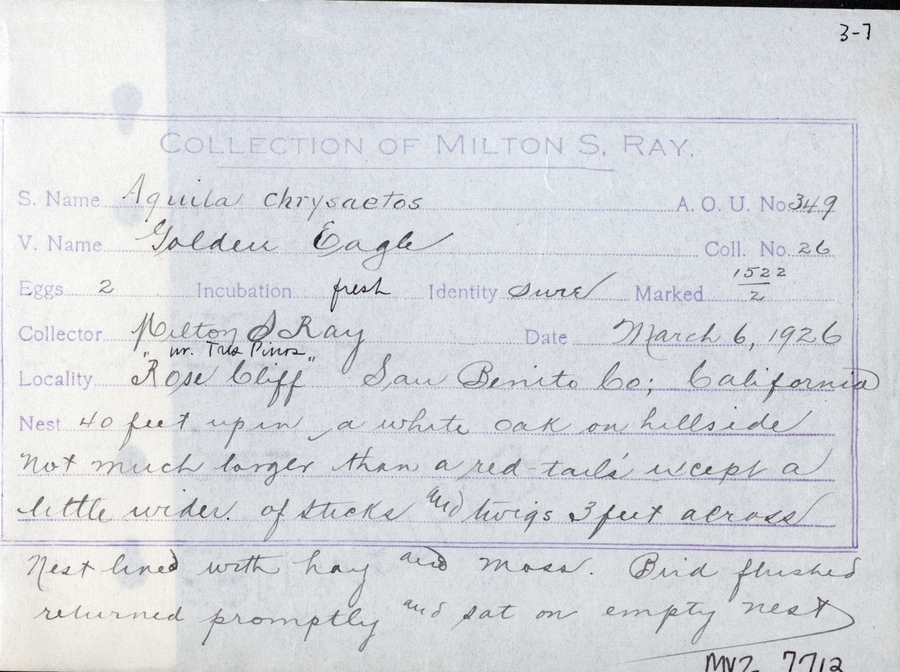 3-7
COLLECTION OF MILTON S. RAY.
S. Name Aquila chrysaetos A. O. U. No. 349
V. Name Golden Eagle Coll. No. 26
Eggs 2 Incubation fresh Identity sure Marked 1522/2
Collector Milton S Ray Date March 6, 1926
nr. Tres Pinos
Locality "Rose Cliff" San Benito Co; California
Nest 40 feet up in a white oak on hillside
Not much larger than a red-tail's except a
little wider. of sticks and twigs 3 feet across
Nest lined with hay and moss. Bird flushed
returned promptly and sat on empty nest
MVZ 7713